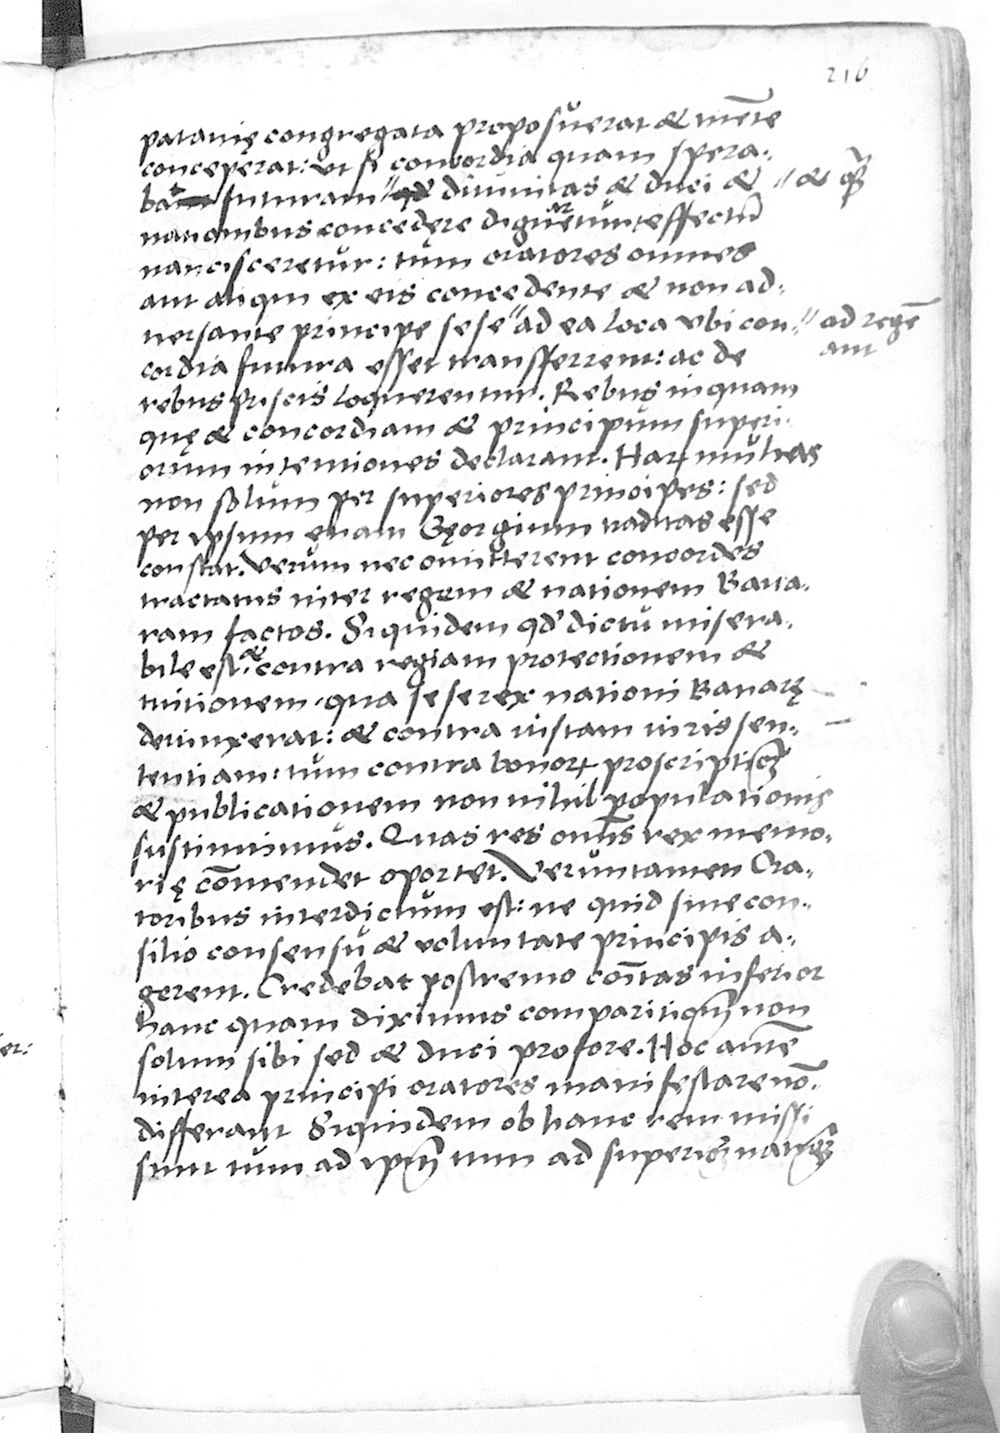 216
patauię congregata proposuerat & mēte
conceperat: ut si concordia quam spera-
bat futuram " diuinitas & duci & " & qd
nationibus concedere dignaretur effectū
nancisceretur: tum oratores omnes
aut aliqui ex eis concedente & non ad-
uersante principe sese " ad ea loca ubi con- " ad regē
aut
cordia futura esset transferrent: ac de
rebus priscis loquerentur. Rebus inquam
quę & concordiam & principum superi-
orum intentiones declarant. Has multas
non solum per superiores principes: sed
per ipsum etiam Georgium traditas esse
constat. Verum nec omitterent concordes
tractatus inter regem & nationem Baua-
ram factos. Siquidem qd dictu misera-
bile est: contra regiam protectionem &
tuitionem, qua sese rex nationi Bauarę
deuinxerat: & contra iustam iuris sen-
tentiam: tum contra bonorum proscriptionem
& publicationem non nihil populationis
sustinuimus. Quas res omnis rex memo-
rię cōmendet oportet. Veruntamen Ora-
toribus interdictum est: ne quid sine con-
silio consensu & voluntate principis a-
gerent. Credebat postremo cōitas inferior
hanc quam diximus comparitionem non
solum sibi sed & duci profore. Hoc autē
er:
interea principi oratores manifestare nō
differant Siquidem ob hanc rem missi
sunt tum ad ipsum tum ad superiorem nationem